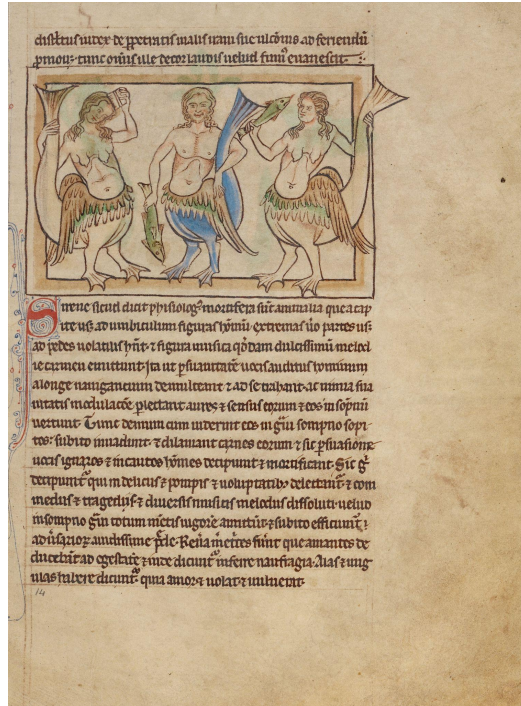 districtus iudex de perpetratis malis iram sue ulcionis ad feriendum
promouet tunc omnis ille decor laudis velud fumus evanescit
Sirene sicut dicit phisiologus mortifera sunt animalia que a cap
ite usque ad umbilicum figuras hominum extremas uero partes usque
ad pedes volatilis habent et figura musica quoddam dulcissimum melod
ie carmen emittunt ita ut per suauitatem uocis auditus hominum
a longe nauigancium demulceant et ad se trahant ac nimia sua
uitatis modulacione plectant aures et sensus eorum et eos in sompnum
uertunt Tunc demum cum uiderint eos in graui sompno sopi
tos subito inuadunt et dilaniant carnes eorum et sic persuasione
uocis ignaros et incautos homines decipiunt et mortificant Sic igitur
decipiuntur qui in deliciis et pompis et voluptatibus delectantur et com
mediis et tragediis et diuersis musicis melodiis dissoluti velud
in sompno graui totum mentis uigorem amittunt et subito efficiuntur
aduersariorum auidissime prede
ducebant ad egestatem et inde dicuntur inferre naufragia Alas et ung
ulas habere dicuntur quia amor et uolat et uulnerat
14